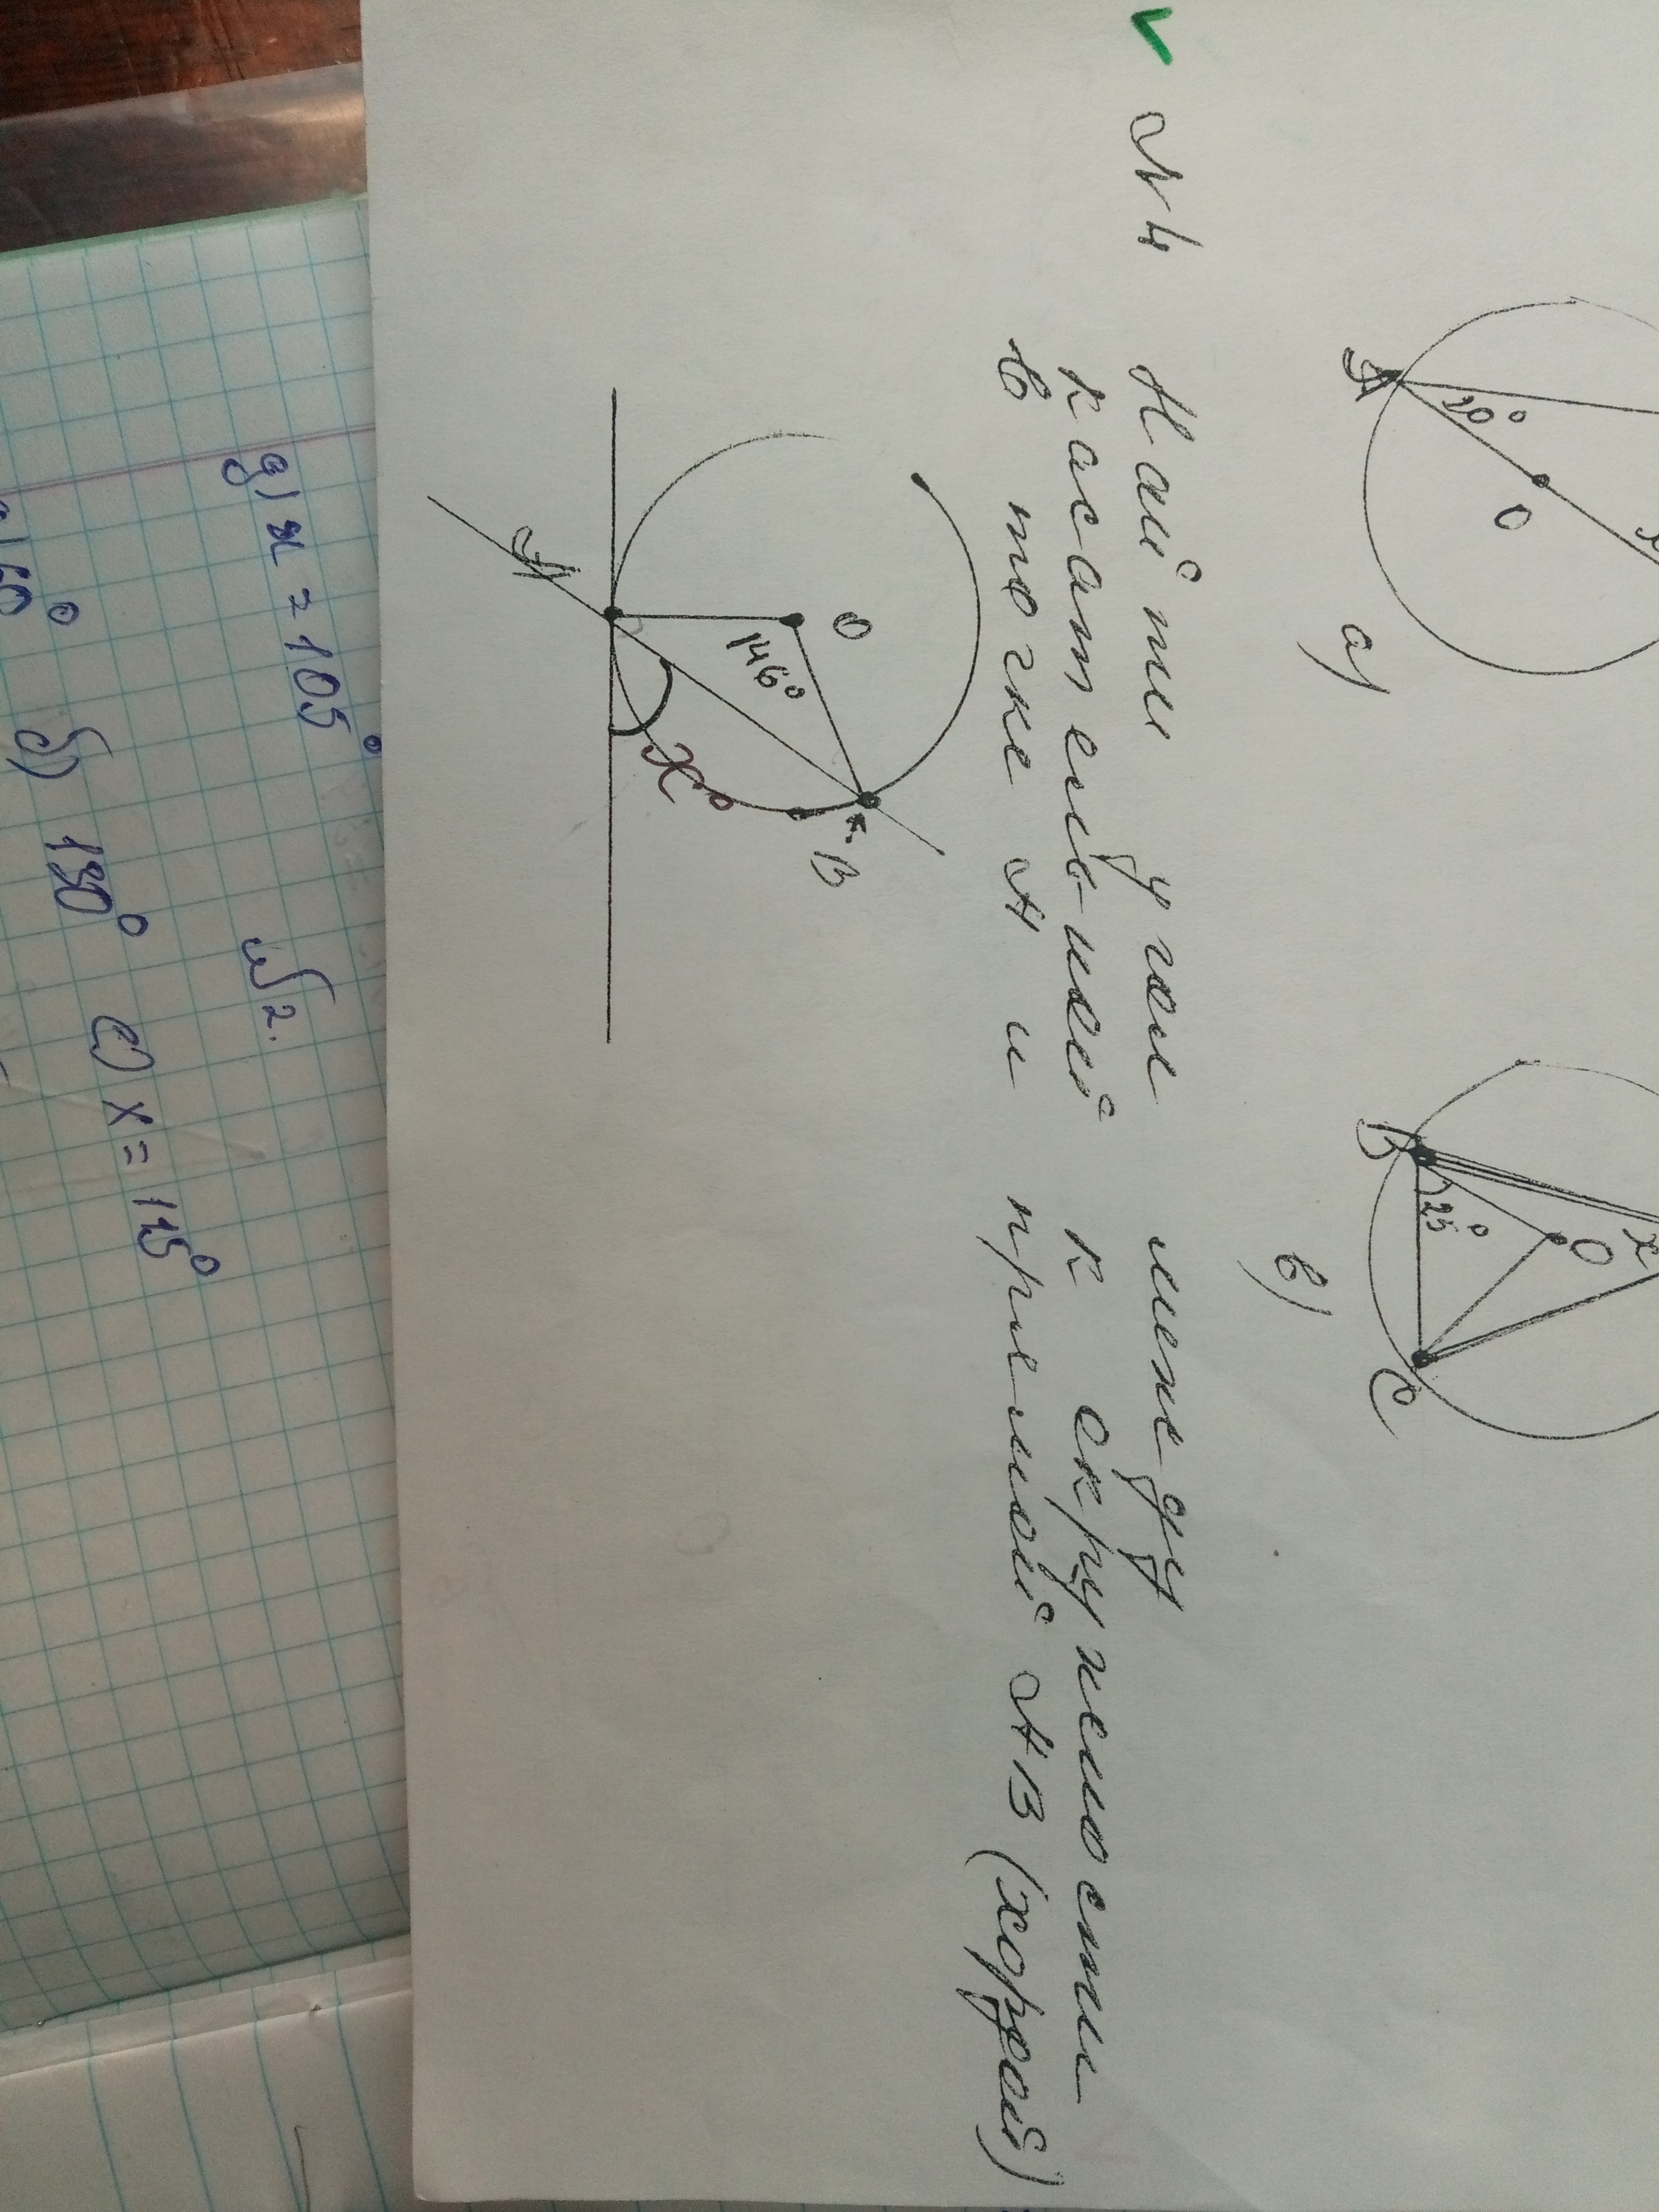 А
20°
О
а)
В
25°
О
х
С
в)
№4 Найти угол между
касательной к окружности
в точке А и прямой АВ (хордой)
О
146°
А
х°
В
д) х = 105°
№2.
б) 130° е) х = 115°